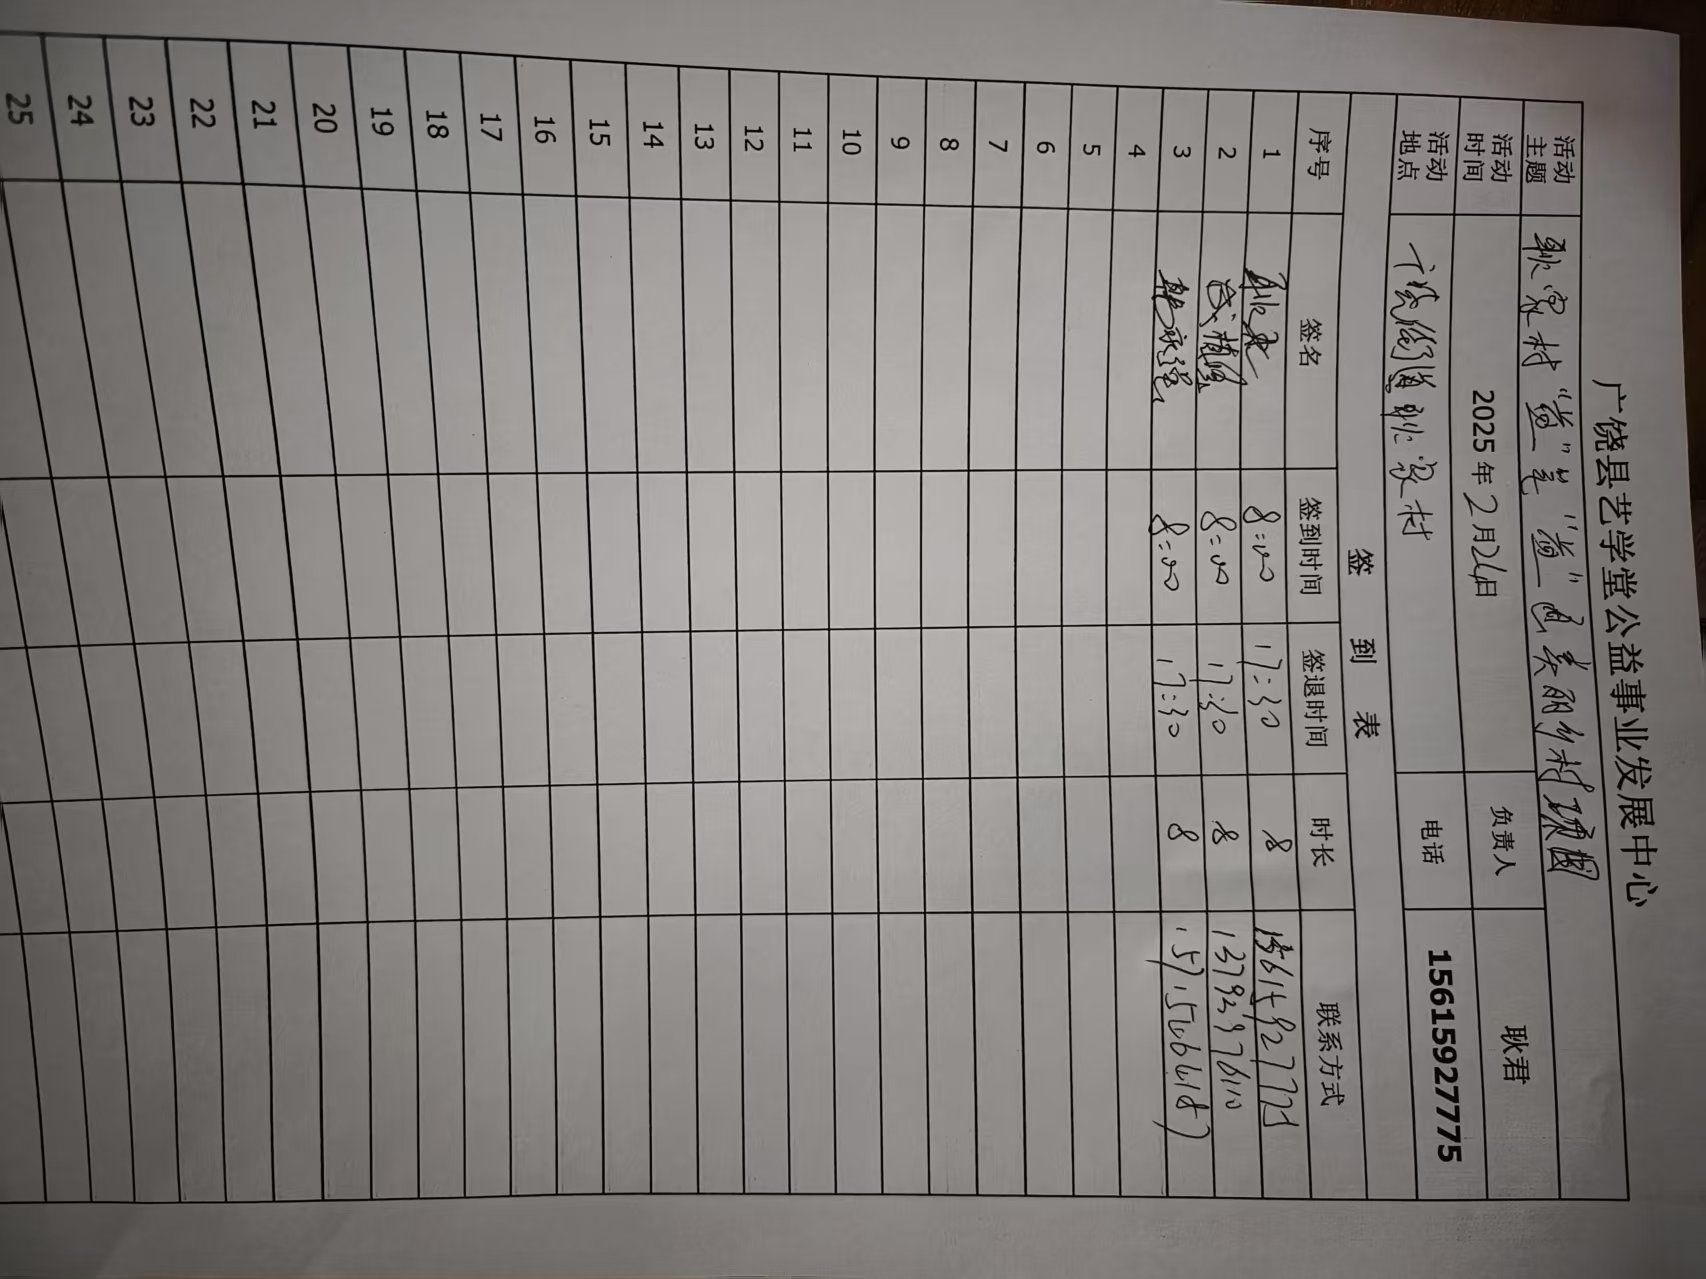 广饶县艺学堂公益事业发展中心
活动主题 耿家村“ ”笔“ ” 美丽乡村
活动时间 2025年2月24日 负责人 耿君
活动地点 街道耿家村 电话 15615927775
签 到 表
序号 签名 签到时间 签退时间 时长 联系方式
1 耿君 8:00 17:30 8 15615927775
2 8:00 17:30 8
3 8:00 17:30 8
4
5
6
7
8
9
10
11
12
13
14
15
16
17
18
19
20
21
22
23
24
25